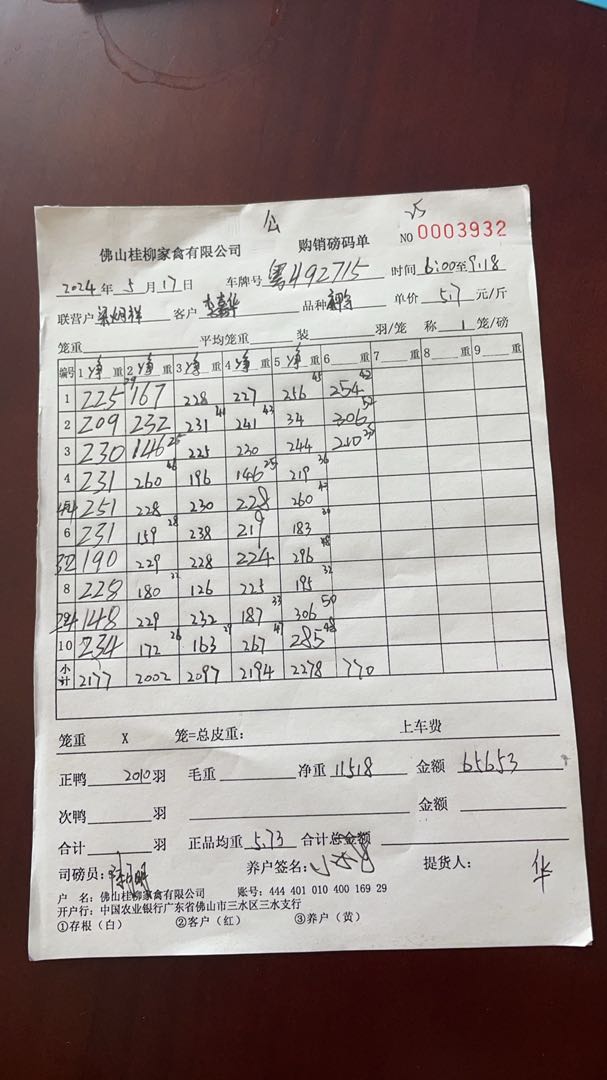 公
25
佛山桂柳家禽有限公司 购销磅码单 NO 0003932
2024年5月17日 车牌号 粤A92715 时间 6:00至9:18
联营户 客户 李嘉华 品种 单价 5.7 元/斤
笼重 平均笼重 装 羽/笼 称 1 笼/磅
编号 1 净 重 2 净 重 3 净 重 4 净 重 5 净 重 6 重 7 重 8 重 9 重
1 225 167 29 228 227 256 45 254 42
2 209 232 231 41 241 43 34 306 52
3 230 146 25 225 230 244 210 35
4 231 260 46 196 146 25 219 36
44 251 228 230 228 260 42
6 231 159 28 238 219 183
32 190 229 228 224 296 48
8 228 180 32 126 225 195 32
24 148 229 232 187 33 306 50
10 234 172 26 163 29 267 47 285 48
小计 2177 2002 2097 2194 2278 770
笼重 X 笼=总皮重： 上车费
正鸭 2010 羽 毛重 净重 11518 金额 65653
次鸭 羽 金额
合计 羽 正品均重 5.73 合计总金额
司磅员： 养户签名： 提货人： 华
户 名：佛山桂柳家禽有限公司 账号：444 401 010 400 169 29
开户行：中国农业银行广东省佛山市三水区三水支行
①存根（白） ②客户（红） ③养户（黄）